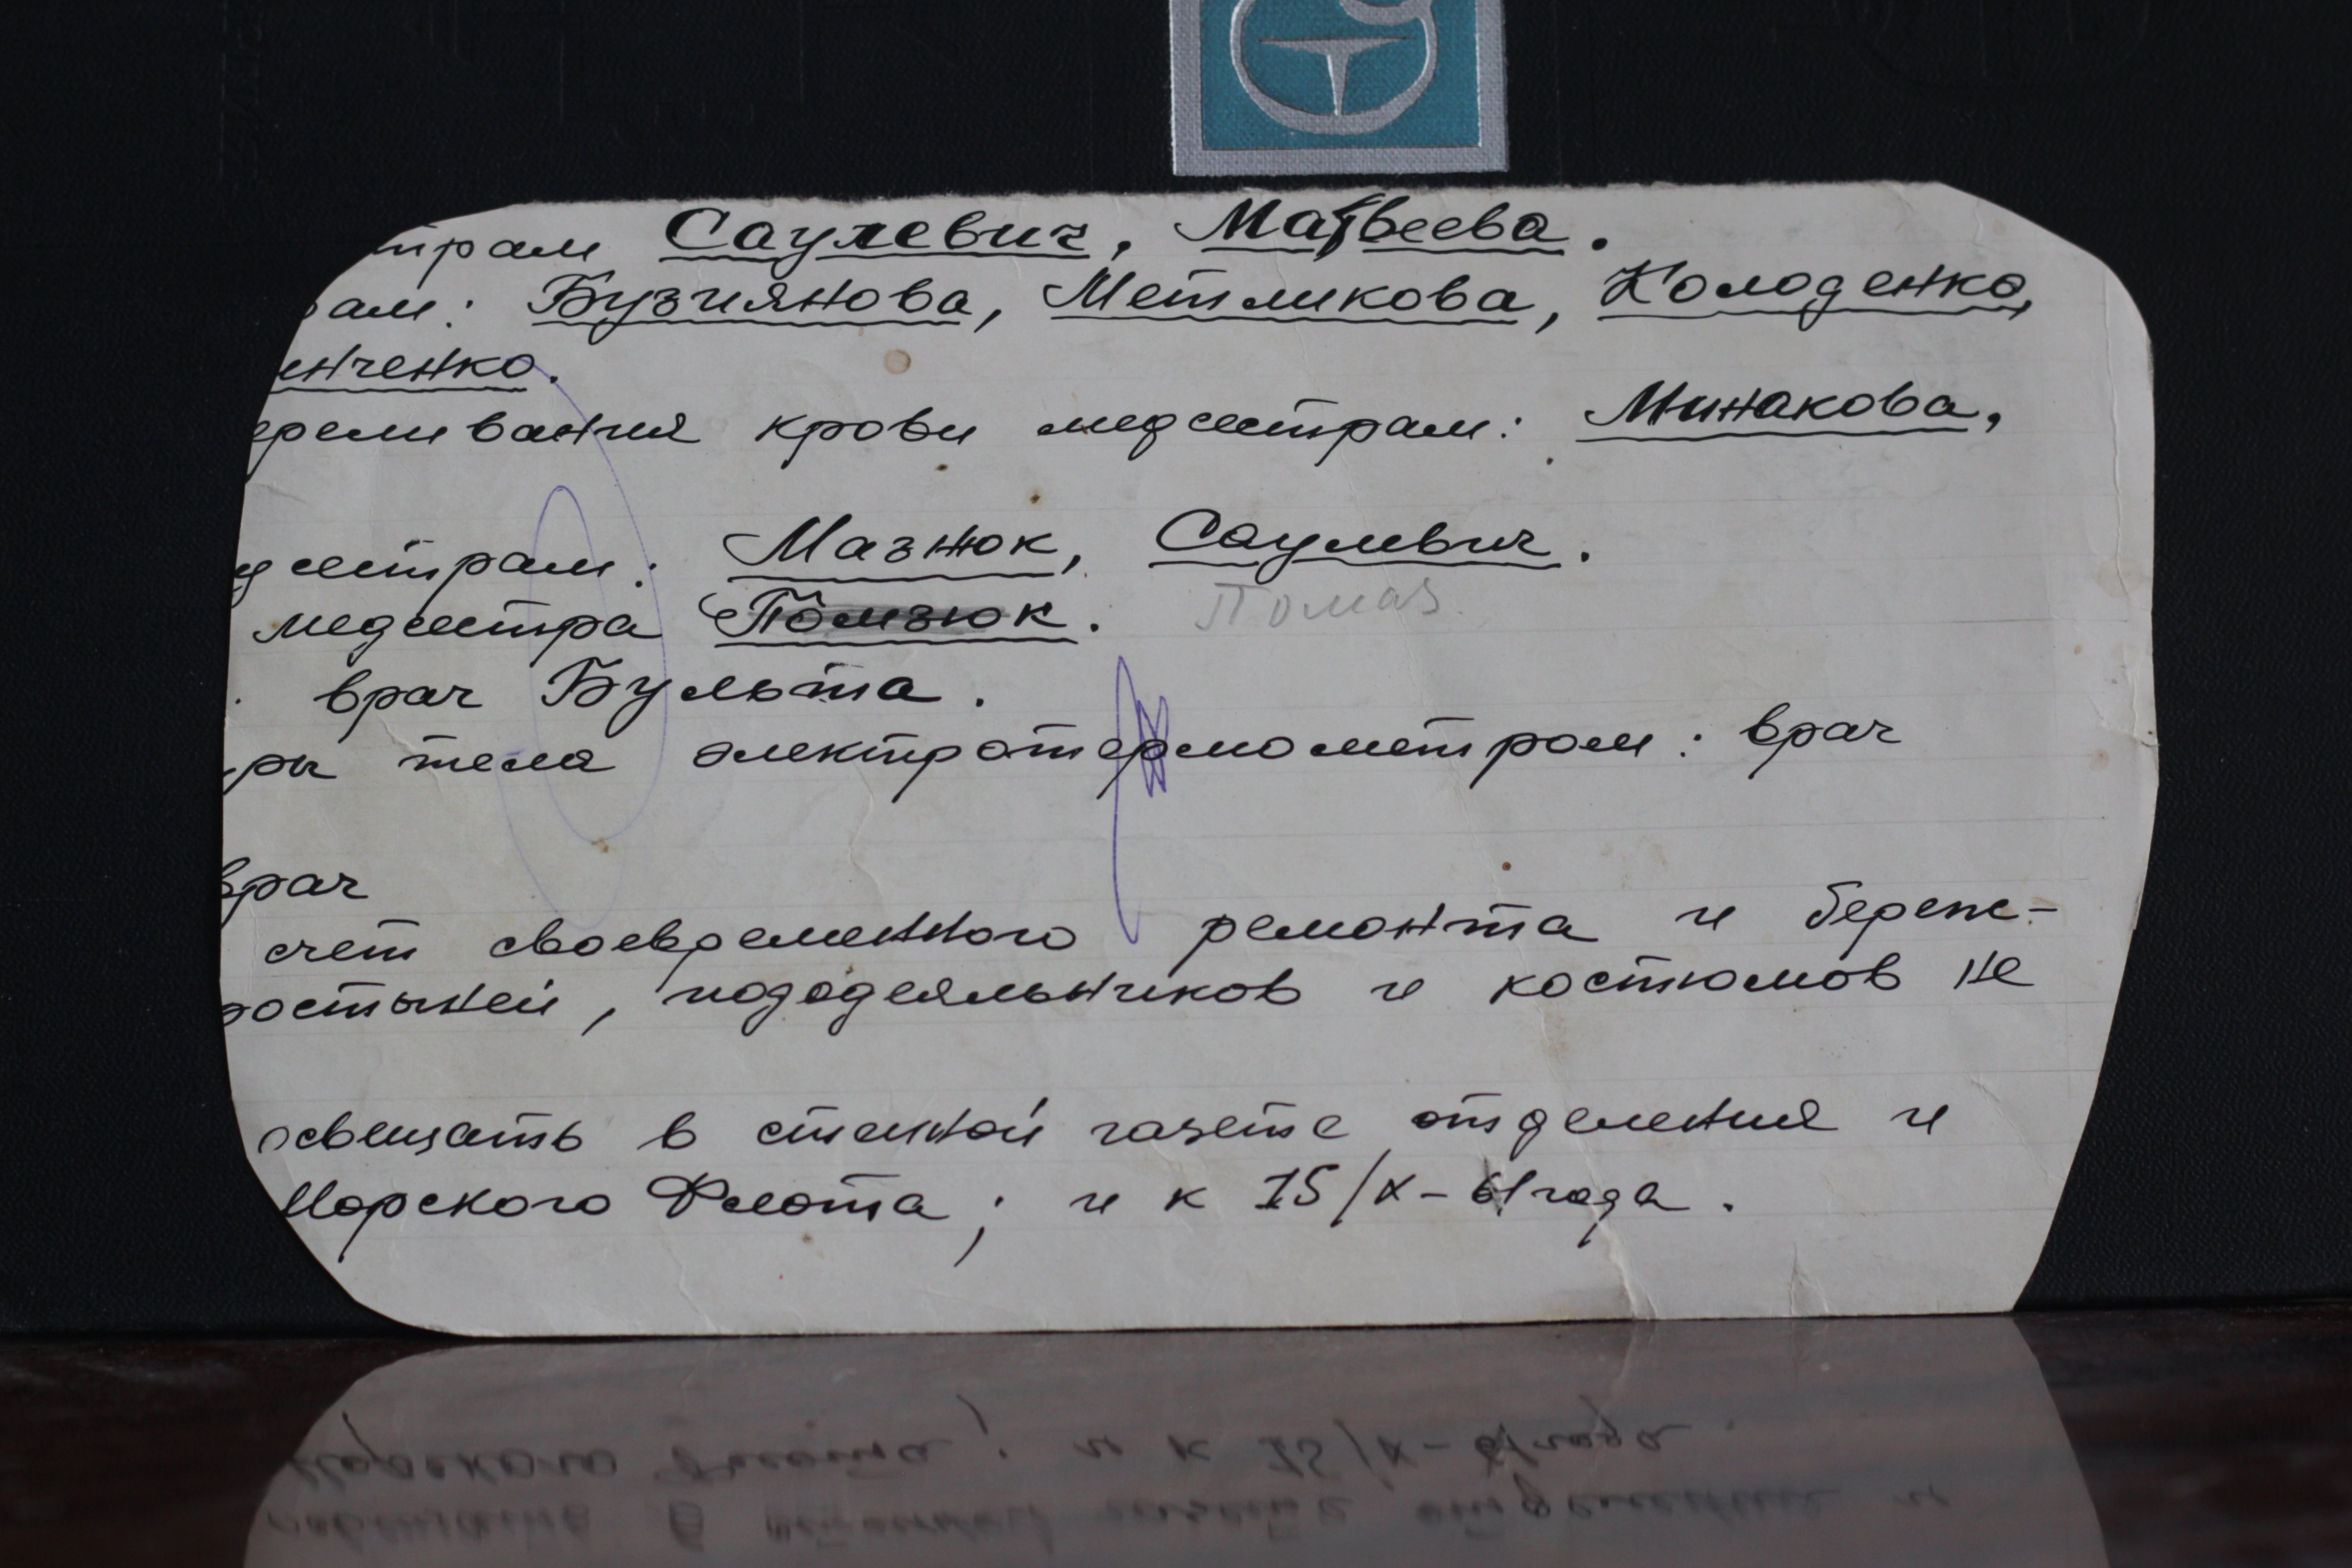 трам Саулевич, Матвеева.
рам: Бузиянова, Метликова, Колоденко,
инченко.
ереливания крови медсестрам: Минакова,
дсестрам: Мазнюк, Саулевич.
медсестра Помзюк. Помаз
врач Бульта.
ры тела электротермометром: врач
врач
счет своевременного ремонта и береж-
ростыней, пододеяльников и костюмов не
освещать в стенной газете отделения и
Морского Флота; и к 15/X-61 года.